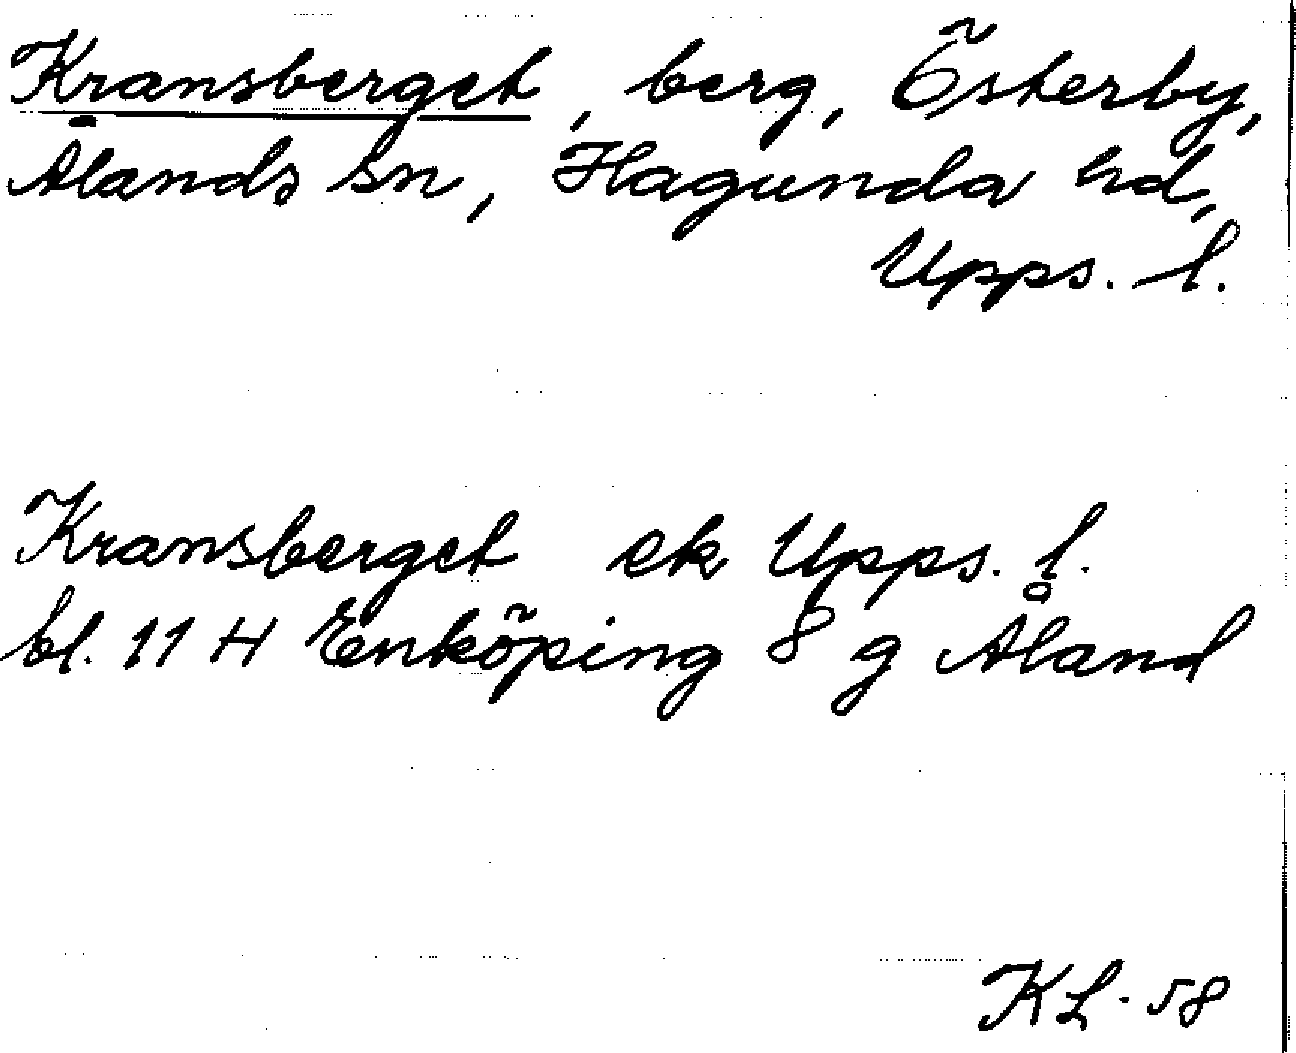 Kransberget, berg, Österby,
Ålands sn, Hagunda hd,
Upps. l.
Kransberget ek Upps. l.
bl. 11 H Enköping 8 g Åland
KL-58